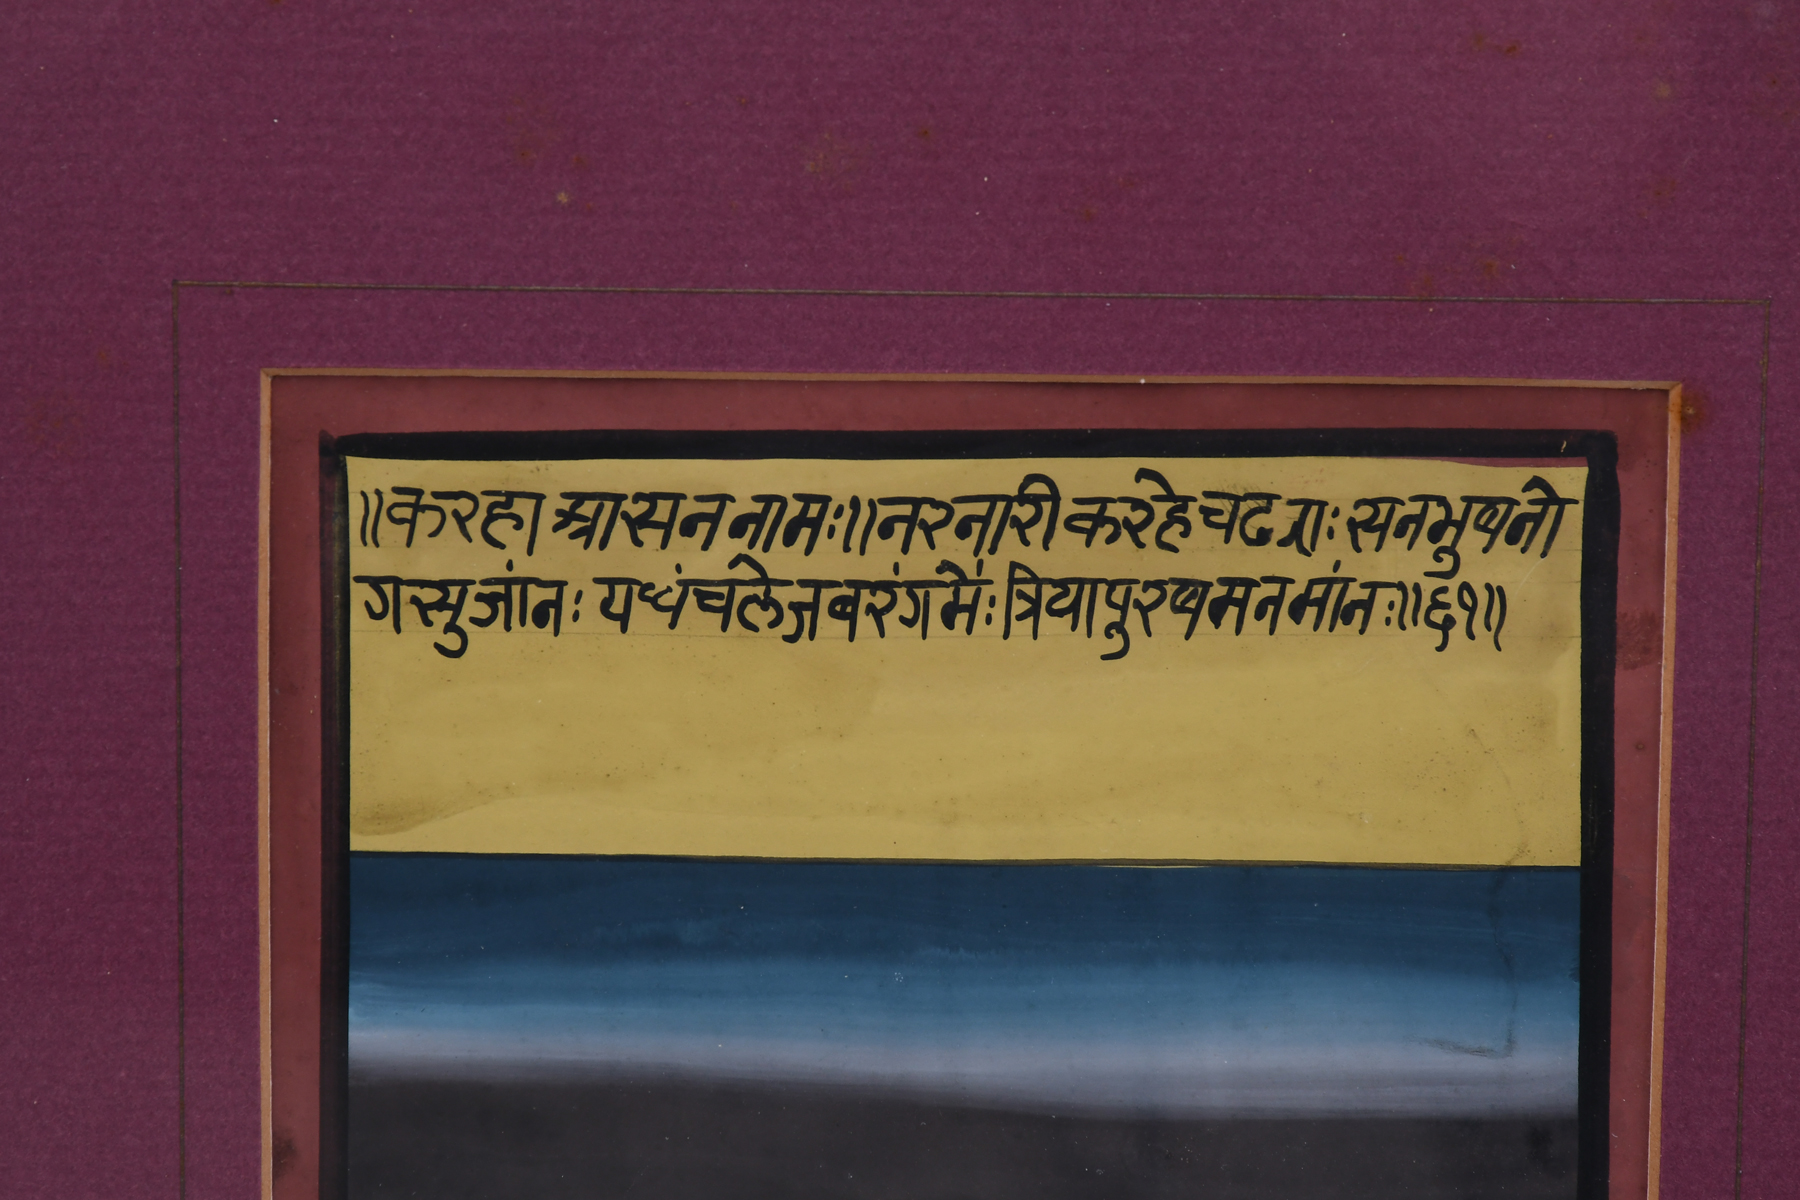 ॥करहा आसन नामः॥नर नारी कर हे चढ त्राः स्यन भुषन नो
ग स्सुजांनः पथंचले जब रंगमेंः त्रिया पुरष मन मांनः॥६१॥